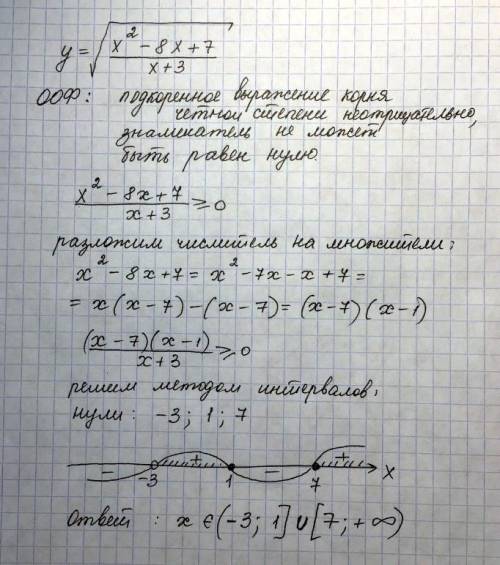 y = √((x² - 8x + 7)/(x + 3))
ООФ: подкоренное выражение корня
четной степени неотрицательно,
знаменатель не может
быть равен нулю.
(x² - 8x + 7)/(x + 3) ≥ 0
разложим числитель на множители:
x² - 8x + 7 = x² - 7x - x + 7 =
= x(x - 7) - (x - 7) = (x - 7)(x - 1)
((x - 7)(x - 1))/(x + 3) ≥ 0
решим методом интервалов,
нули: -3; 1; 7
- + - +
-3 1 7 x
Ответ: x ∈ (-3; 1] ∪ [7; +∞)